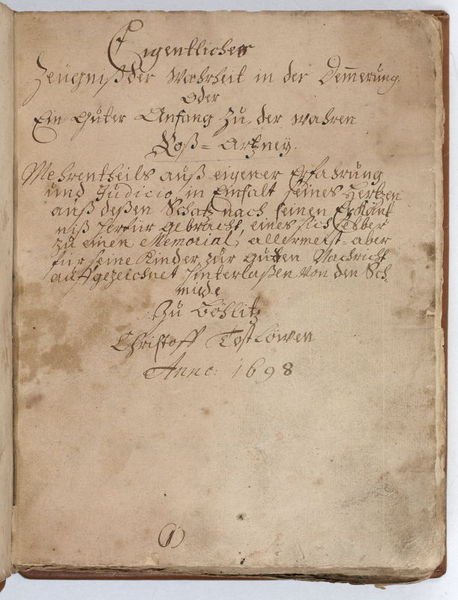 Eigentliches
Zeugniß der Warheit in der Demerung
Oder
Ein Guter Anfang Zu der wahren
Roß-Artzney.
Mehrentheils auß eigener Erfahrung
und Judicio, in Einfalt seines Hertzen
auß deßen Schatz nach seinen Erkänt
niß herfür gebracht, eines sich selber
zu einen Memorial, allermeist aber
für seine Kinder, zur guten Nachricht
auffgezeichnet hinterlaßen von den Sch
miede
Zu Böhlitz
Christoff
Anno: 1698
(1)